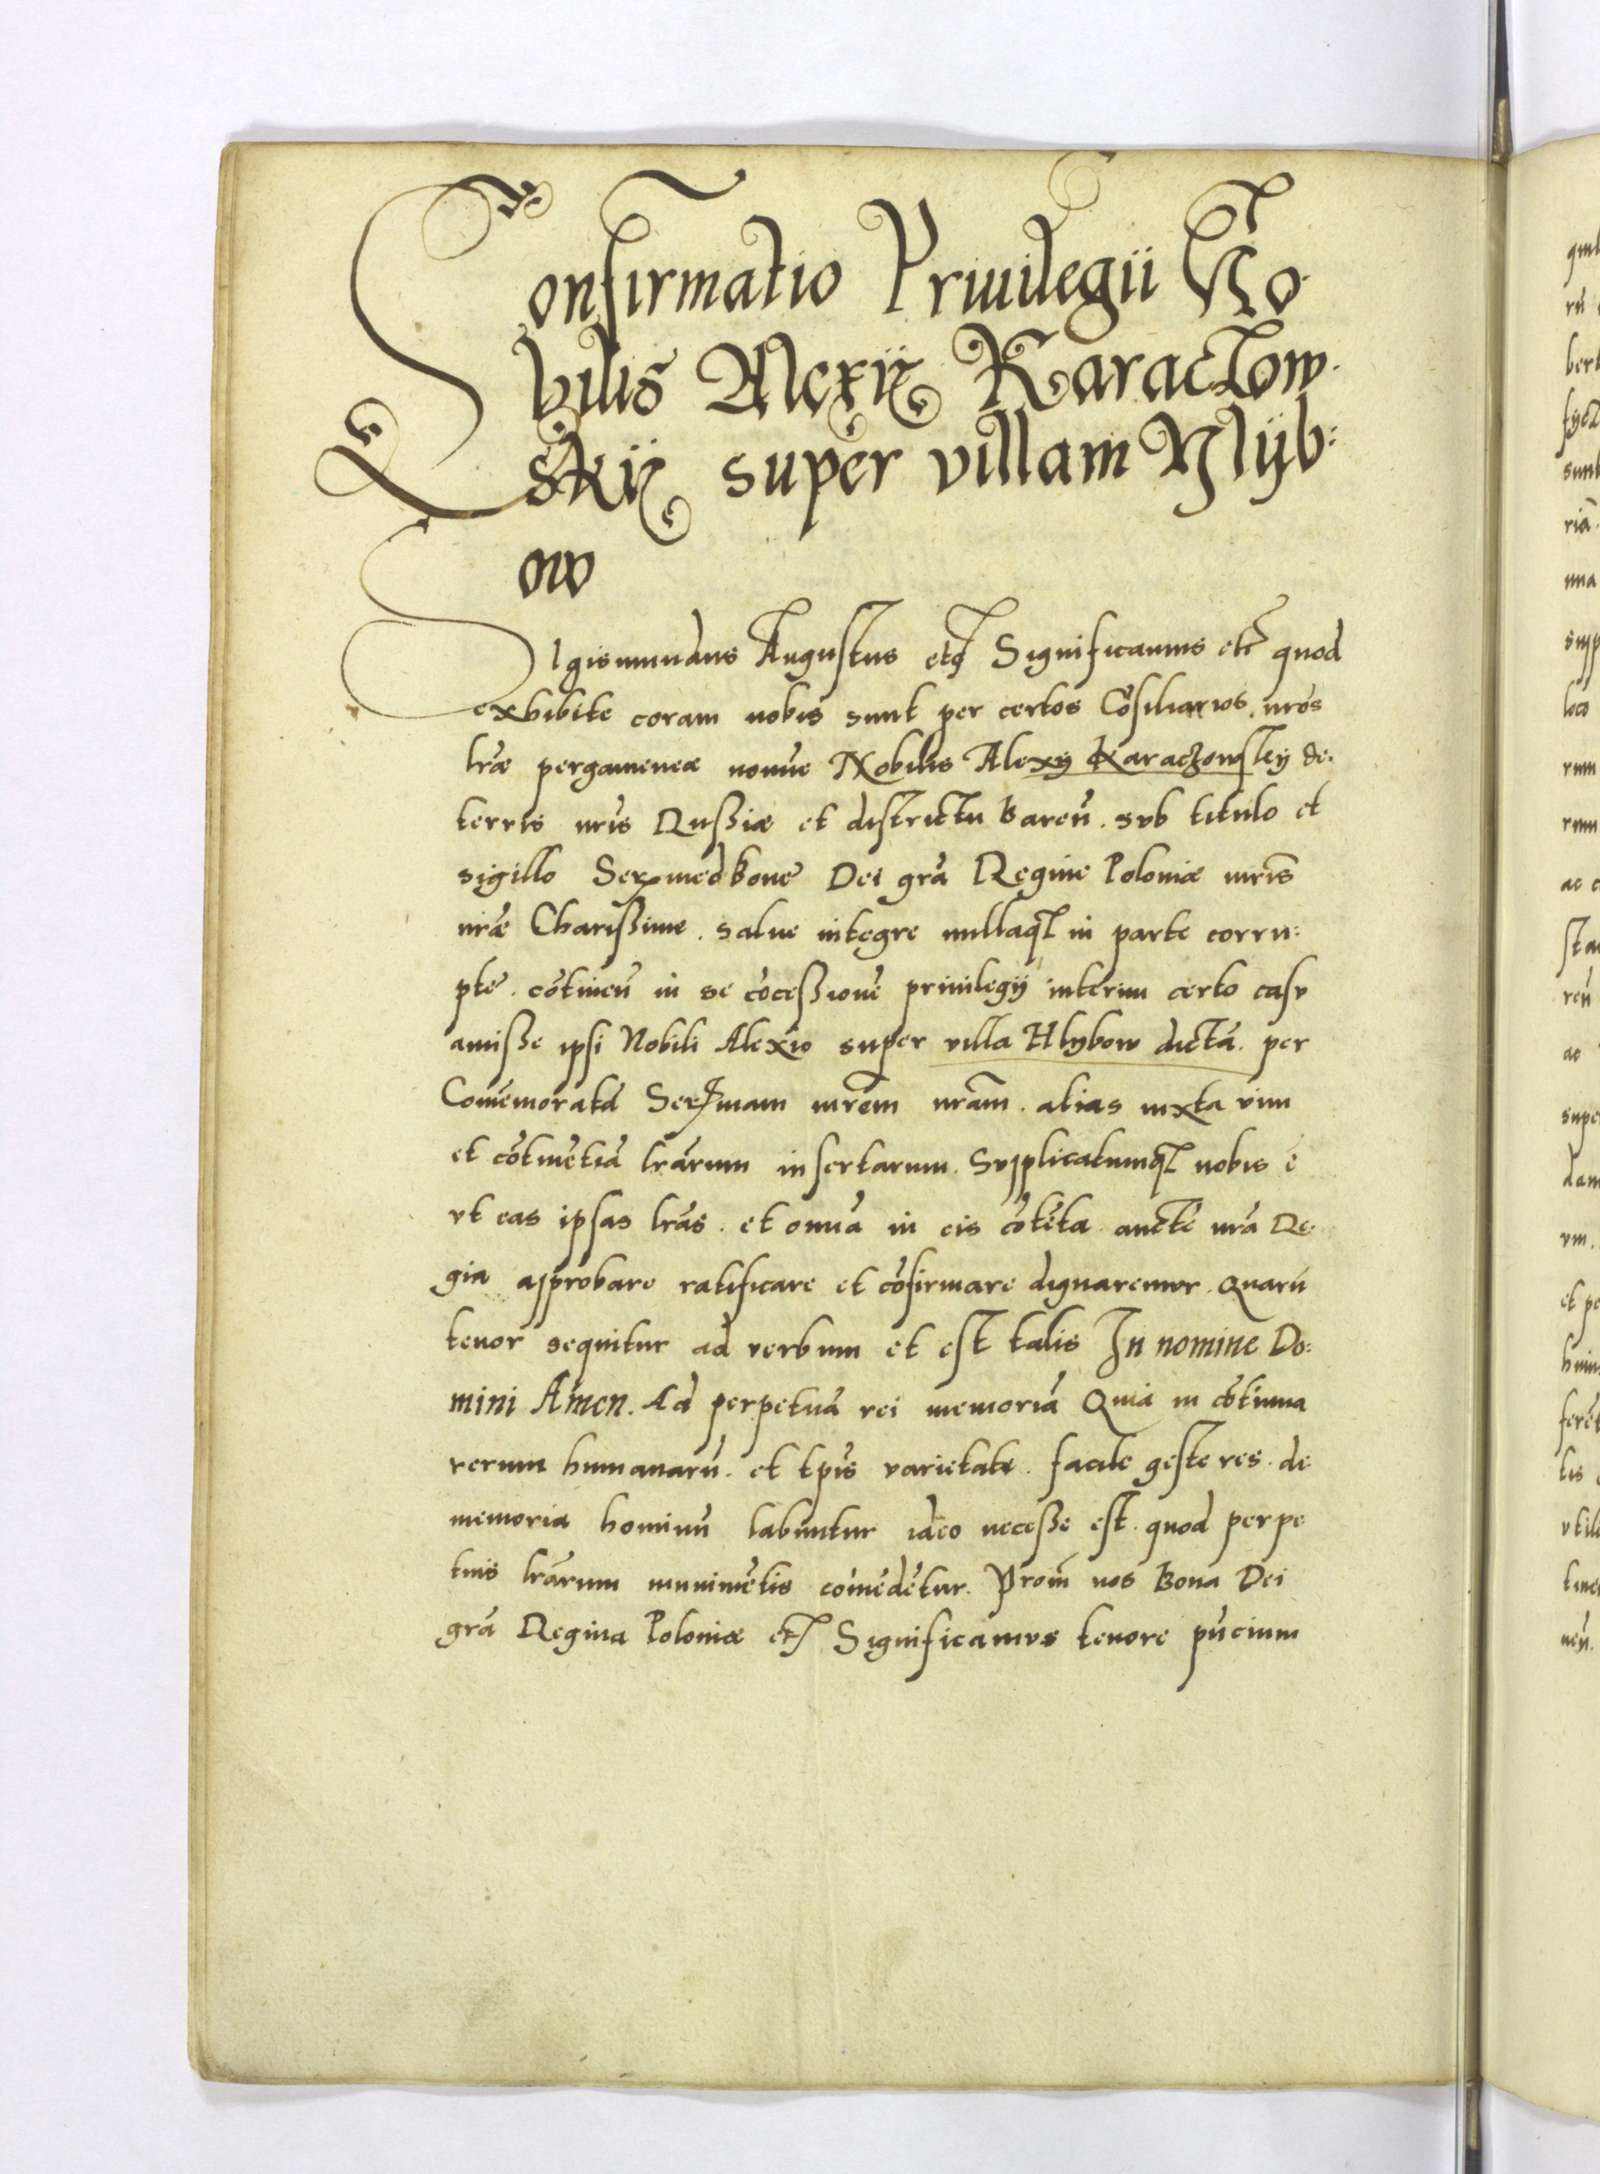 Confirmatio Priuilegii No-
bilis Alexii Karaczow-
skii super villam Hlÿb:
ow
Sigismundus Augustus etc̃ Significamus etc̃ quod
exhibite coram nobis sunt per certos Cõsiliarios nr̃os
lr̃æ pergameneæ nomĩe Nobilis Alexÿ Karaczowskÿ de:
terris nr̃is Rußiæ et districtu Bareñ. sub titulo et
sigillo Ser͂med Bone Dei grã Regine Poloniæ mr̃is
nr̃æ Charißime. salue integre nullaq̃ in parte corru:
pte. cõtineñ in se cõceßionẽ priuilegÿ interim certo casu
amiße ipsi Nobili Alexio super villã Hlybow dictã. per
Comẽmoratã Ser͂mam mr̃em nr̃am. alias iuxta vim
et cõtinẽtiã lr̃arum insertarum. Supplicatumq̃ nobis ẽ
vt eas ipsas lr̃as. et omniã in eis cõtẽta. auctẽ nr̃a Re-
gia approbare ratificare et cõfirmare dignaremur. Quarũ
tenor sequitur ad verbum et est talis In nomine Do:
mini Amen. Ad perpetuã rei memoriã Quia in cõtinua
rerum humanarũ. et tp̃is varietate. facile geste res. de
memoria hominũ labuntur ideo neceße est. quod perpe
tuis lr̃arum munimẽtis comẽdẽtur. Proiñ nos Bona Dei
grã Regina Poloniæ etc̃ Significamus tenore pñcium